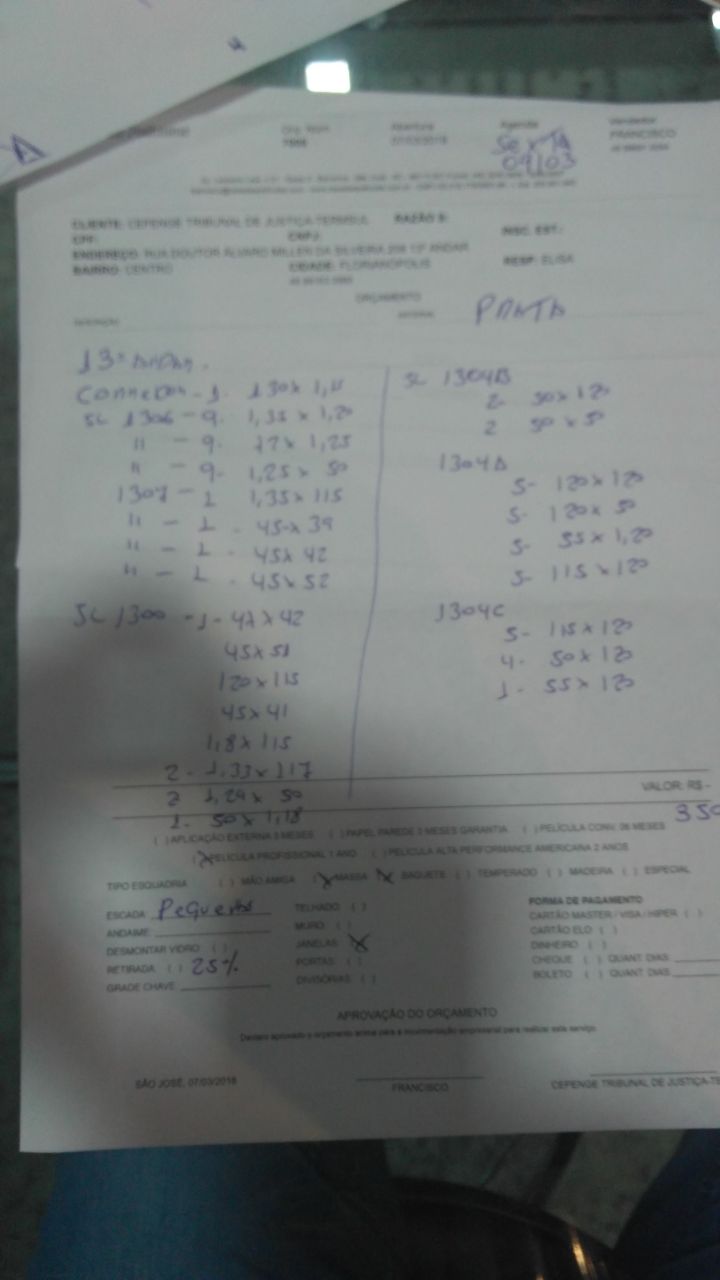 Abertura
Agenda
Vendedor
07/03/2018
Sexta
FRANCISCO
09/03
CLIENTE: CEPENGE TRIBUNAL DE JUSTIÇA-TERMSUL RAZÃO S:
CPF: CNPJ: INSC. EST.:
ENDEREÇO: RUA DOUTOR ALVARO MILLEN DA SILVEIRA 208 13º ANDAR
BAIRRO: CENTRO CIDADE: FLORIANÓPOLIS RESP: ELISA
ORÇAMENTO
PRATA
13º ANDAR.
CORREDOR - 1. 130 x 1,15
SL 1306 - 9. 1,35 x 1,20
" - 9. 77 x 1,25
" - 9. 1,25 x 50
1307 - 1 1,35 x 115
" - 1 - 45 x 39
" - 1 - 45 x 42
" - 1 - 45 x 52
SL 1300 - 1 - 47 x 42
45 x 51
120 x 115
45 x 41
1,8 x 115
2 - 1,33 x 117
2 1,29 x 50
1 - 50 x 1,18
SL 1304B
2 50 x 120
2 50 x 50
1304A
5- 120 x 120
5- 120 x 50
5- 55 x 1,20
5- 115 x 120
1304C
5- 115 x 120
4- 50 x 120
1- 55 x 120
VALOR: R$ -
350
( ) APLICAÇÃO EXTERNA 3 MESES ( ) PAPEL PAREDE 3 MESES GARANTIA ( ) PELÍCULA CONV. 06 MESES
(X) PELÍCULA PROFISSIONAL 1 ANO ( ) PELÍCULA ALTA PERFORMANCE AMERICANA 2 ANOS
TIPO ESQUADRIA ( ) MÃO AMIGA (X) MASSA (X) BAGUETE ( ) TEMPERADO ( ) MADEIRA ( ) ESPECIAL
ESCADA Pequena
ANDAIME:
DESMONTAR VIDRO: ( )
RETIRADA ( ) 25%
GRADE CHAVE:
TELHADO ( )
MURO ( )
JANELAS (X)
PORTAS: ( )
DIVISÓRIAS: ( )
FORMA DE PAGAMENTO
CARTÃO MASTER / VISA / HIPER ( )
CARTÃO ELO ( )
DINHEIRO ( )
CHEQUE ( ) QUANT DIAS:
BOLETO ( ) QUANT DIAS:
APROVAÇÃO DO ORÇAMENTO
Declaro aprovado o orçamento acima para a movimentação empresarial para realizar este serviço.
SÃO JOSÉ, 07/03/2018
FRANCISCO
CEPENGE TRIBUNAL DE JUSTIÇA-TE